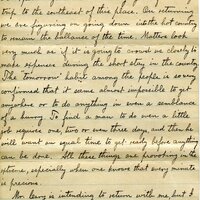 trip to the southeast of this place. On returning
we are figuring on going down into the hot country
to remain the ballance of the time. Matters look
very much as if it is going to crowd us closely to
make expenses during the short stay in the country.
The 'tomorrow' habit among the people is so very
confirmed that it seems almost impossible to get
anywhere or to do anything in even a semblance
of a hurry. To find a man to do even a little
job requires one, two or even three days, and then he
will want an equal time to get ready before anything
can be done. All these things are provoking in the
extreme, especially when one knows that every minute
is precious.
Mr. is intending to return with me, but I